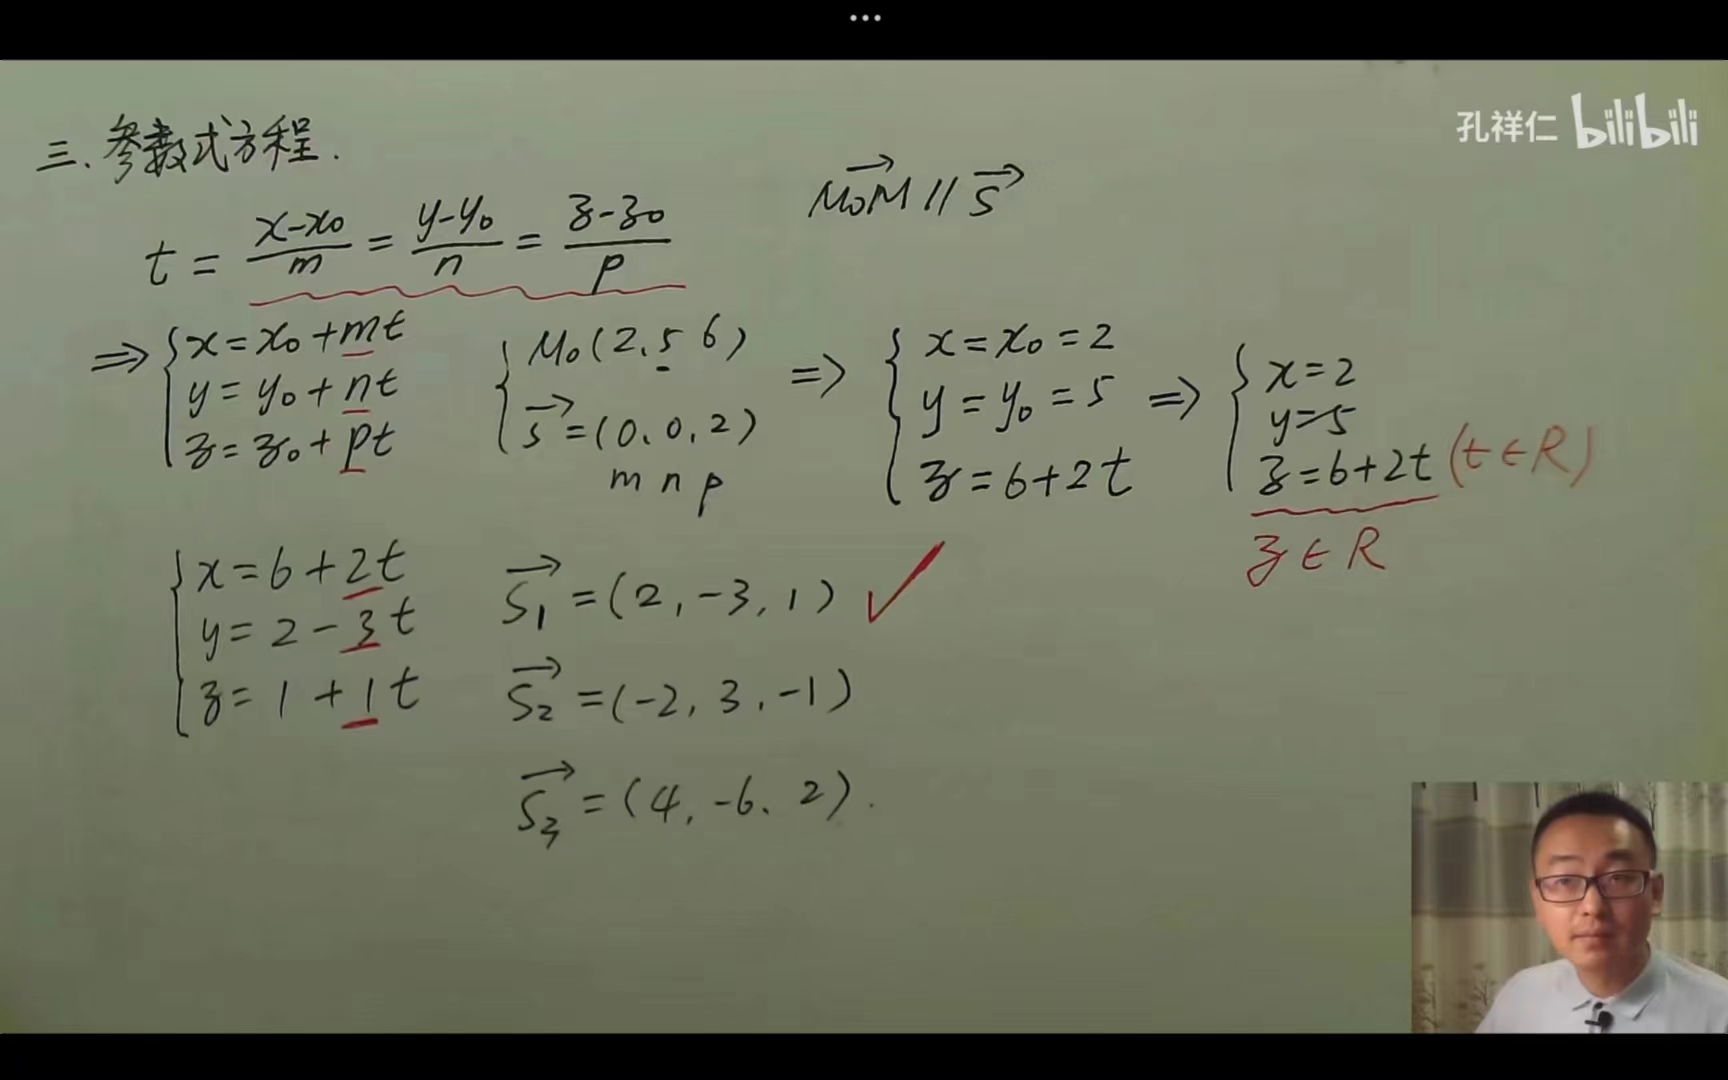 ...
孔祥仁 bilibili
三.参数式方程.
M₀M⃗ // s⃗
t = (x-x₀)/m = (y-y₀)/n = (z-z₀)/p
⇒ { x = x₀ + mt
y = y₀ + nt
z = z₀ + pt
{ M₀(2.5 6)
s⃗ = (0.0.2)
m n p
⇒ { x = x₀ = 2
y = y₀ = 5
z = 6+2t
⇒ { x=2
y=5
z=6+2t (t∈R)
z∈R
{ x = 6+2t
y = 2-3t
z = 1+1t
S₁⃗ = (2,-3,1) ✓
S₂⃗ = (-2,3,-1)
S₃⃗ = (4,-6、2).